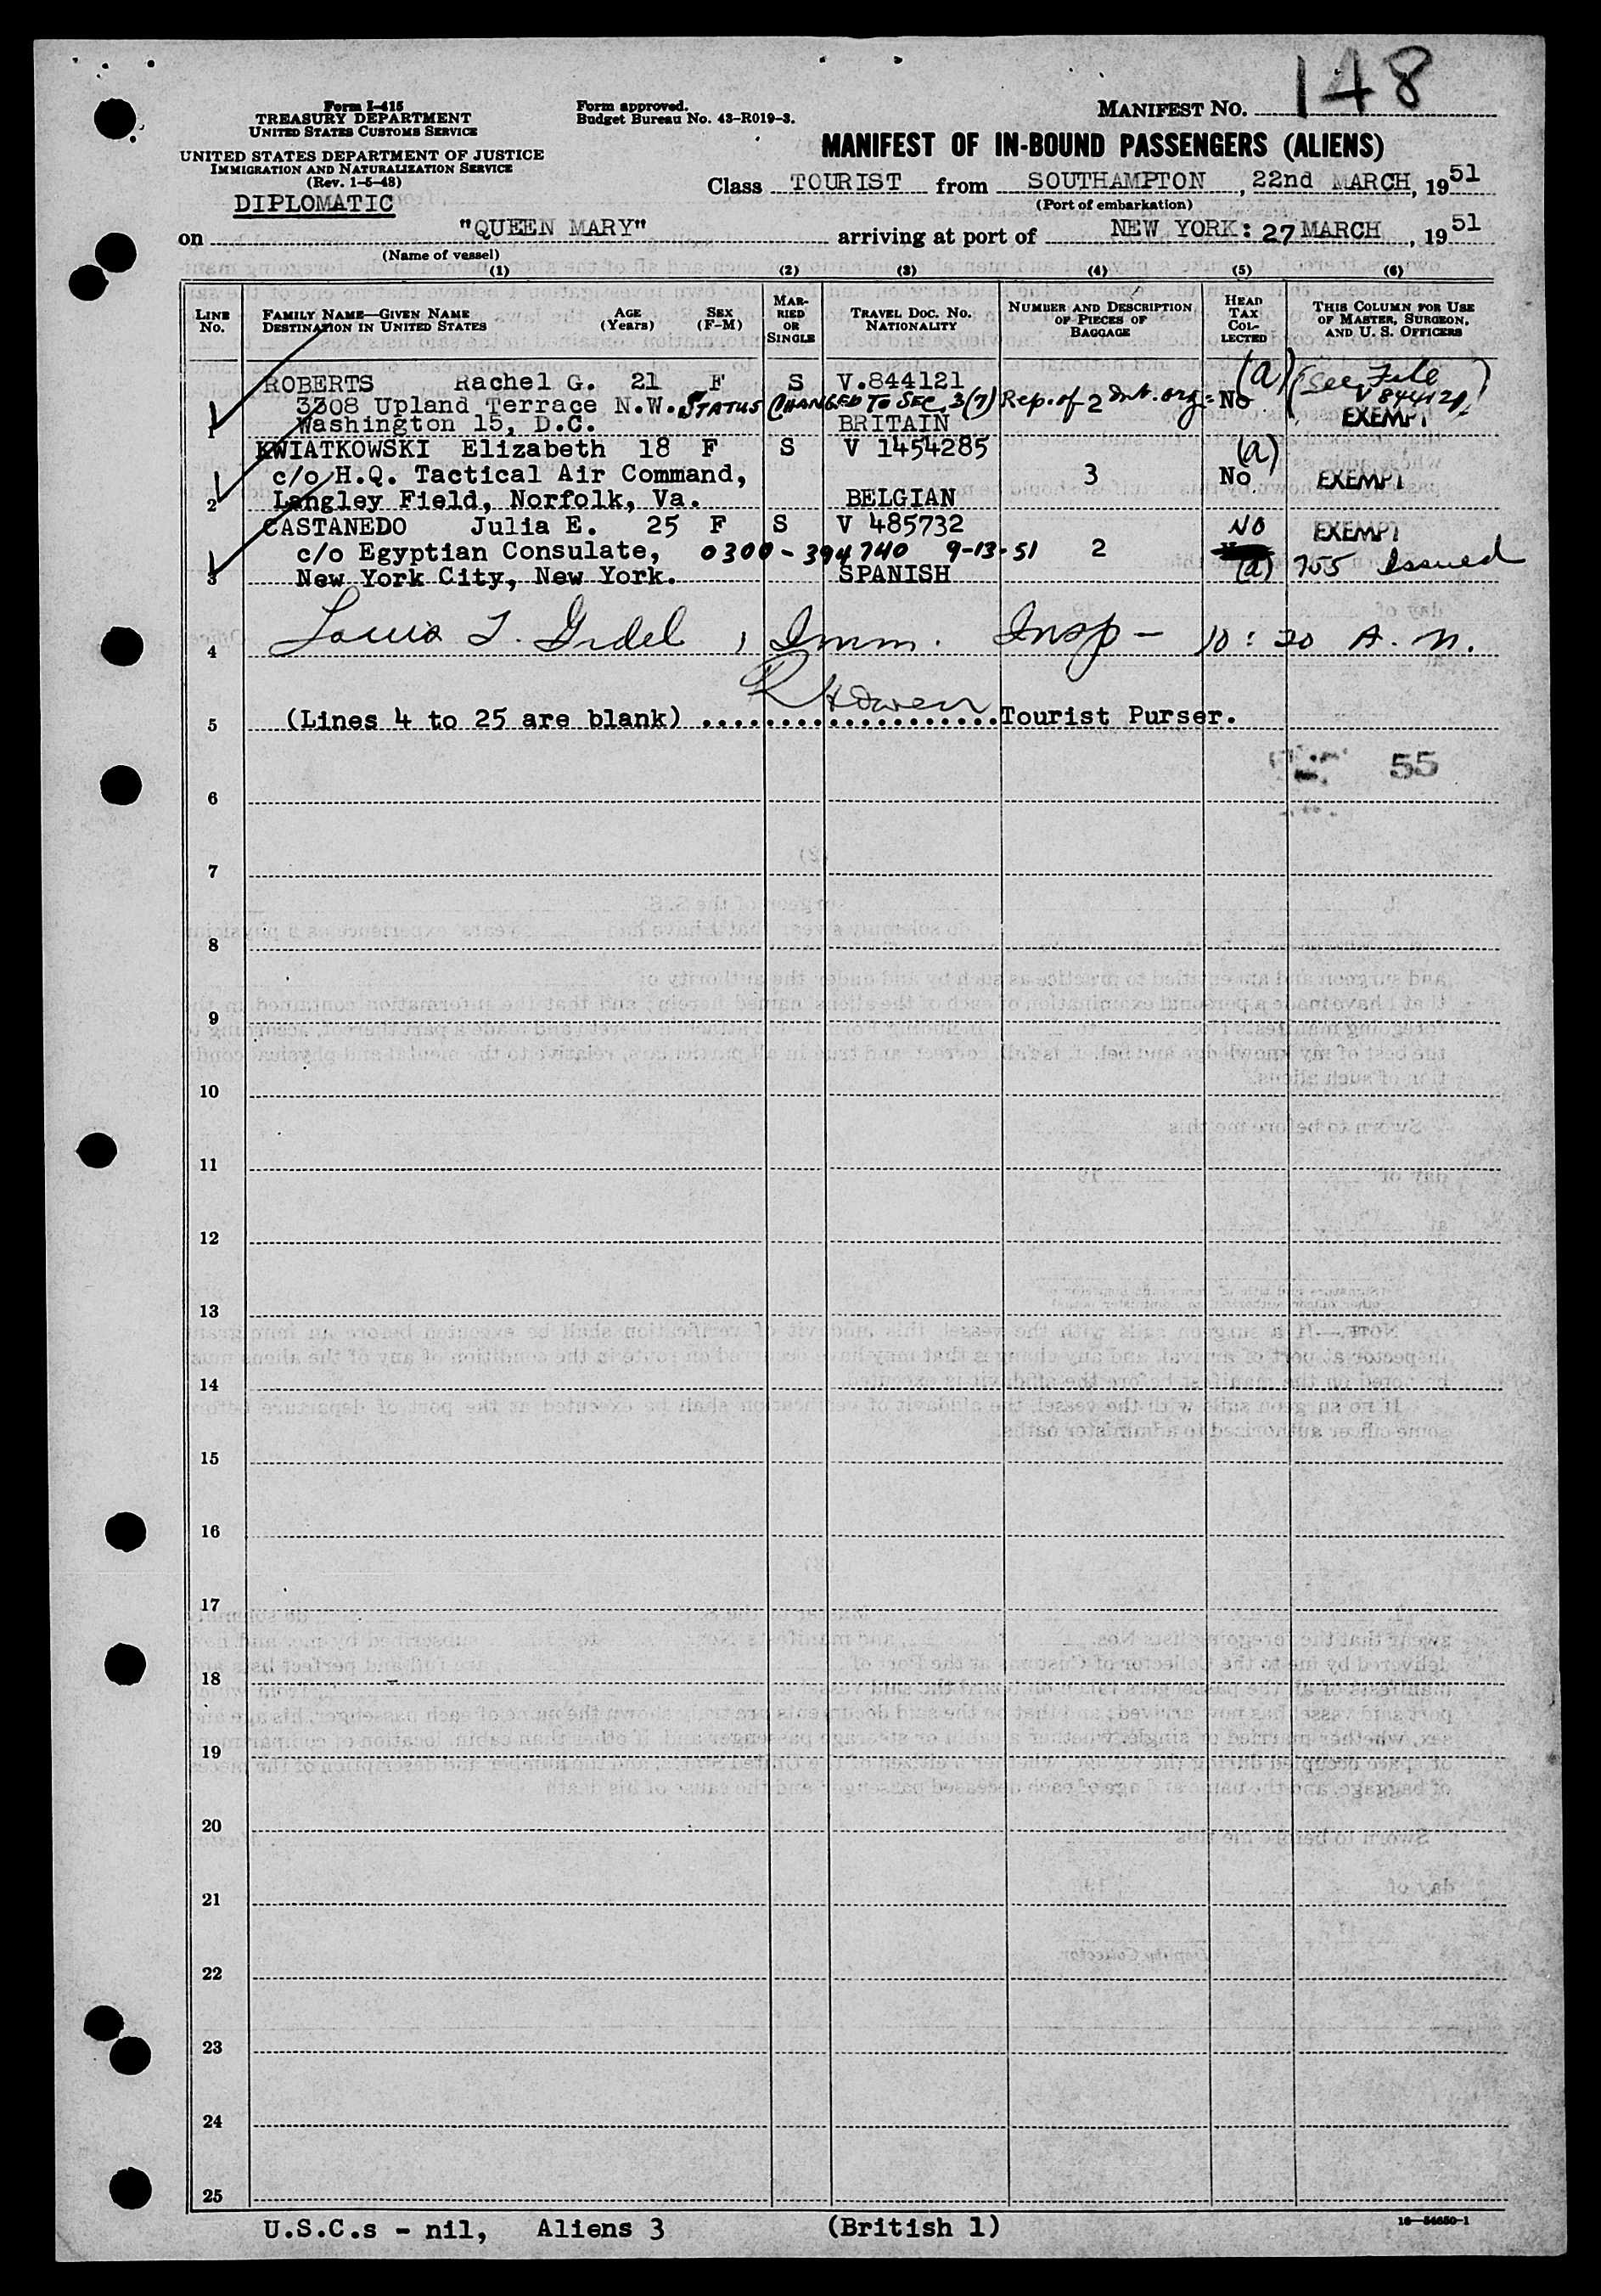 148
Form I-415
TREASURY DEPARTMENT
UNITED STATES CUSTOMS SERVICE
Form approved.
Budget Bureau No. 43-R019-3.
MANIFEST NO.
UNITED STATES DEPARTMENT OF JUSTICE
IMMIGRATION AND NATURALIZATION SERVICE
(Rev. 1-5-48)
DIPLOMATIC
MANIFEST OF IN-BOUND PASSENGERS (ALIENS)
Class TOURIST from SOUTHAMPTON, 22nd MARCH, 1951
(Port of embarkation)
on "QUEEN MARY" arriving at port of NEW YORK: 27 MARCH, 1951
(Name of vessel)
(1) (2) (3) (4) (5) (6)
LINE No.
FAMILY NAME—GIVEN NAME
DESTINATION IN UNITED STATES
AGE (Years)
SEX (F-M)
MARRIED OR SINGLE
TRAVEL DOC. NO.
NATIONALITY
NUMBER AND DESCRIPTION OF PIECES OF BAGGAGE
HEAD TAX COLLECTED
THIS COLUMN FOR USE OF MASTER, SURGEON, AND U. S. OFFICERS
ROBERTS Rachel G. 21 F S V.844121 (a) (See File
3308 Upland Terrace N.W. STATUS CHANGED TO SEC. 3(7) Rep. of 2 Int. org: No V 844121)
1 Washington 15, D.C. BRITAIN EXEMPT
KWIATKOWSKI Elizabeth 18 F S V 1454285 (a)
c/o H.Q. Tactical Air Command, 3 No EXEMPT
2 Langley Field, Norfolk, Va. BELGIAN
CASTANEDO Julia E. 25 F S V 485732 NO EXEMPT
c/o Egyptian Consulate, 0300-394740 9-13-51 2
3 New York City, New York. SPANISH (a) 755 Issued
4 Louis T. Gidel, Imm. Insp - 10:20 A.M.
5 (Lines 4 to 25 are blank) ..................Tourist Purser.
55
6
7
8
9
10
11
12
13
14
15
16
17
18
19
20
21
22
23
24
25
U.S.C.s - nil, Aliens 3 (British 1)
16—54650-1